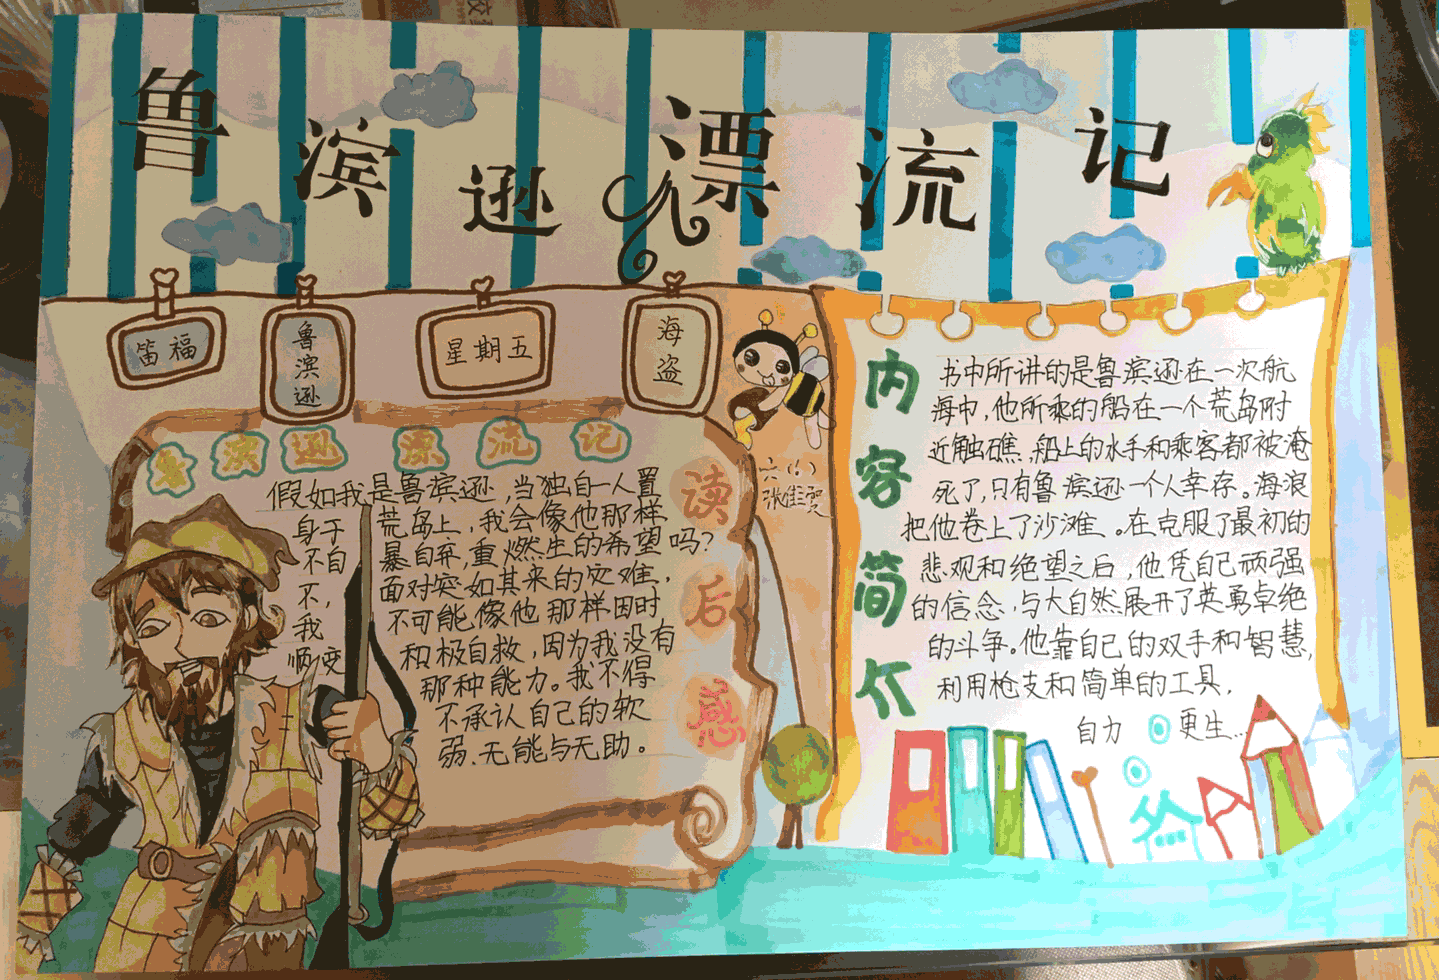 鲁滨逊漂流记
笛福
鲁滨逊
星期五
海盗
鲁滨逊漂流记
读后感
假如我是鲁滨逊，当独自一人置
身于荒岛上，我会像他那样
不自暴自弃，重燃生的希望吗？
不，面对突如其来的灾难，
我不可能像他那样因时
顺变和极自救，因为我没有
那种能力。我不得
不承认自己的软
弱、无能与无助。
六(1)
内容简介
书中所讲的是鲁滨逊在一次航
海中，他所乘的船在一个荒岛附
近触礁，船上的水手和乘客都被淹
死了，只有鲁滨逊一个人幸存。海浪
把他卷上了沙滩。在克服了最初的
悲观和绝望之后，他凭自己顽强
的信念，与大自然展开了英勇卓绝
的斗争。他靠自己的双手和智慧，
利用枪支和简单的工具，
自力更生…